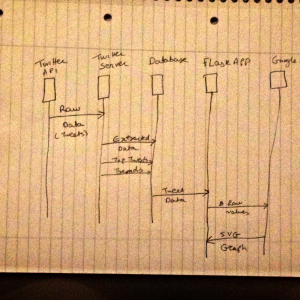 Twitter
API
Twitter
Server
Database
Flask APP
Google
Raw
Data
(Tweets)
Extracted
Data
Top Tweets
Trends
Tweet
Data
Raw
values
SVG
Graph